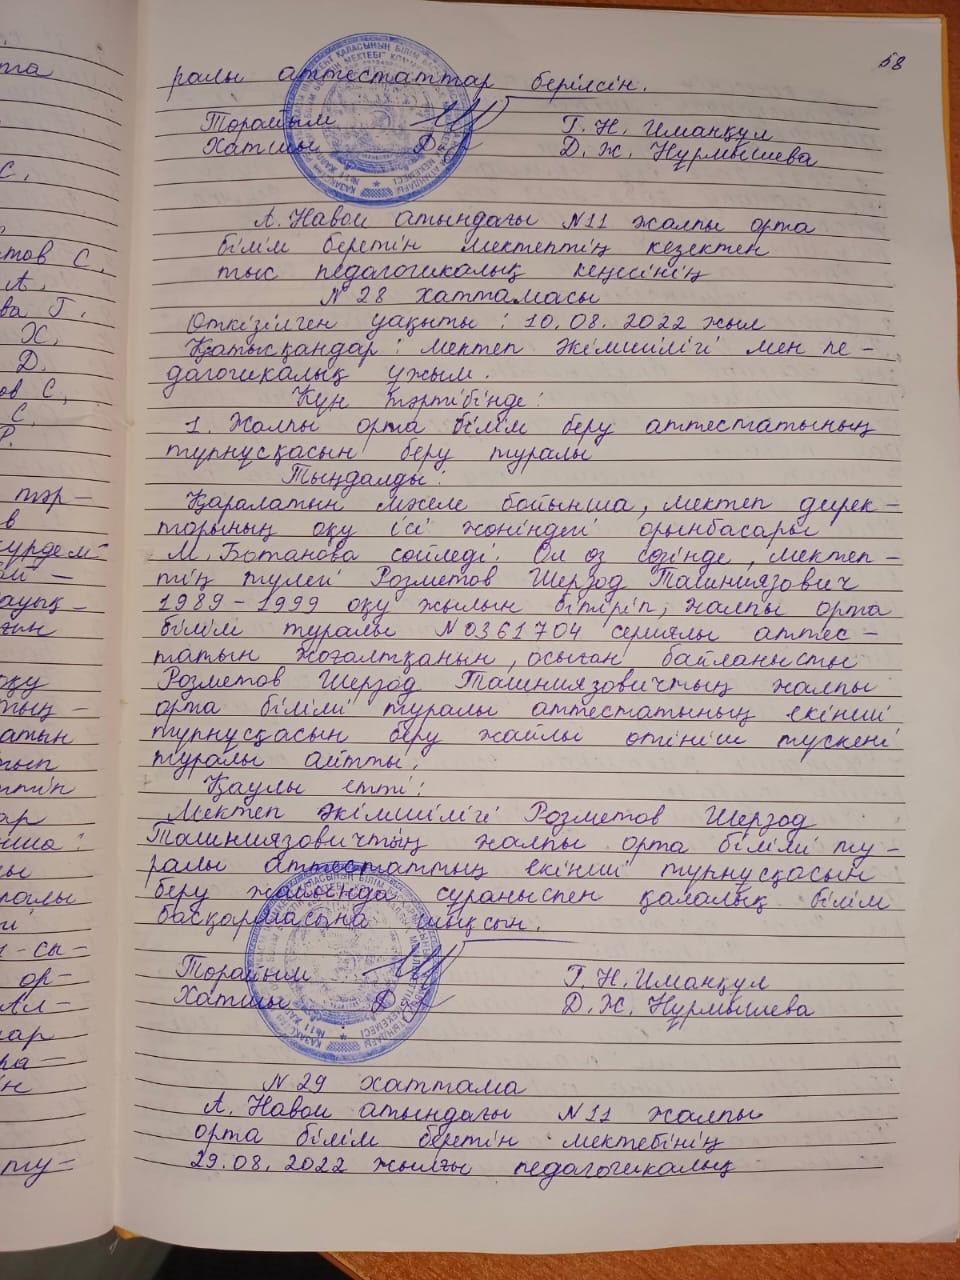 58
ралы аттестаттар берілсін.
Төрайым Г. Н. Иманқұл
Хатшы Д. Ж. Нұрмышева
А. Навои атындағы N11 жалпы орта
білім беретін мектептің кезектен
тыс педагогикалық кеңесінің
N 28 хаттамасы
Өткізілген уақыты : 10. 08. 2022 жыл
Қатысқандар : мектеп әкімшілігі мен пе-
дагогикалық ұжым.
Күн тәртібінде :
1. Жалпы орта білім беру аттестатының
түпнұсқасын беру туралы
Тыңдалды :
Қаралатын мәселе бойынша, мектеп дирек-
торының оқу ісі жөніндегі орынбасары
М. Ботанова сөйледі. Ол өз сөзінде, мектеп-
тің түлегі Розметов Шерзод Ташниязович
1989 - 1999 оқу жылын бітіріп, жалпы орта
білімі туралы N0361704 сериялы аттес-
татын жоғалтқанын, осыған байланысты
Розметов Шерзод Ташниязовичтың жалпы
орта білімі туралы аттестатының екінші
түпнұсқасын беру жайлы өтініш түскені
туралы айтты.
Қаулы етті :
Мектеп әкімшілігі Розметов Шерзод
Ташниязовичтың жалпы орта білімі ту-
ралы аттестаттың екінші түпнұсқасын
беру жайында сұраныспен қалалық білім
басқармасына шықсын.
Төрайым Г. Н. Иманқұл
Хатшы Д. Ж. Нұрмышева
N 29 хаттама
А. Навои атындағы N11 жалпы
орта білім беретін мектебінің
29. 08. 2022 жылғы педагогикалық